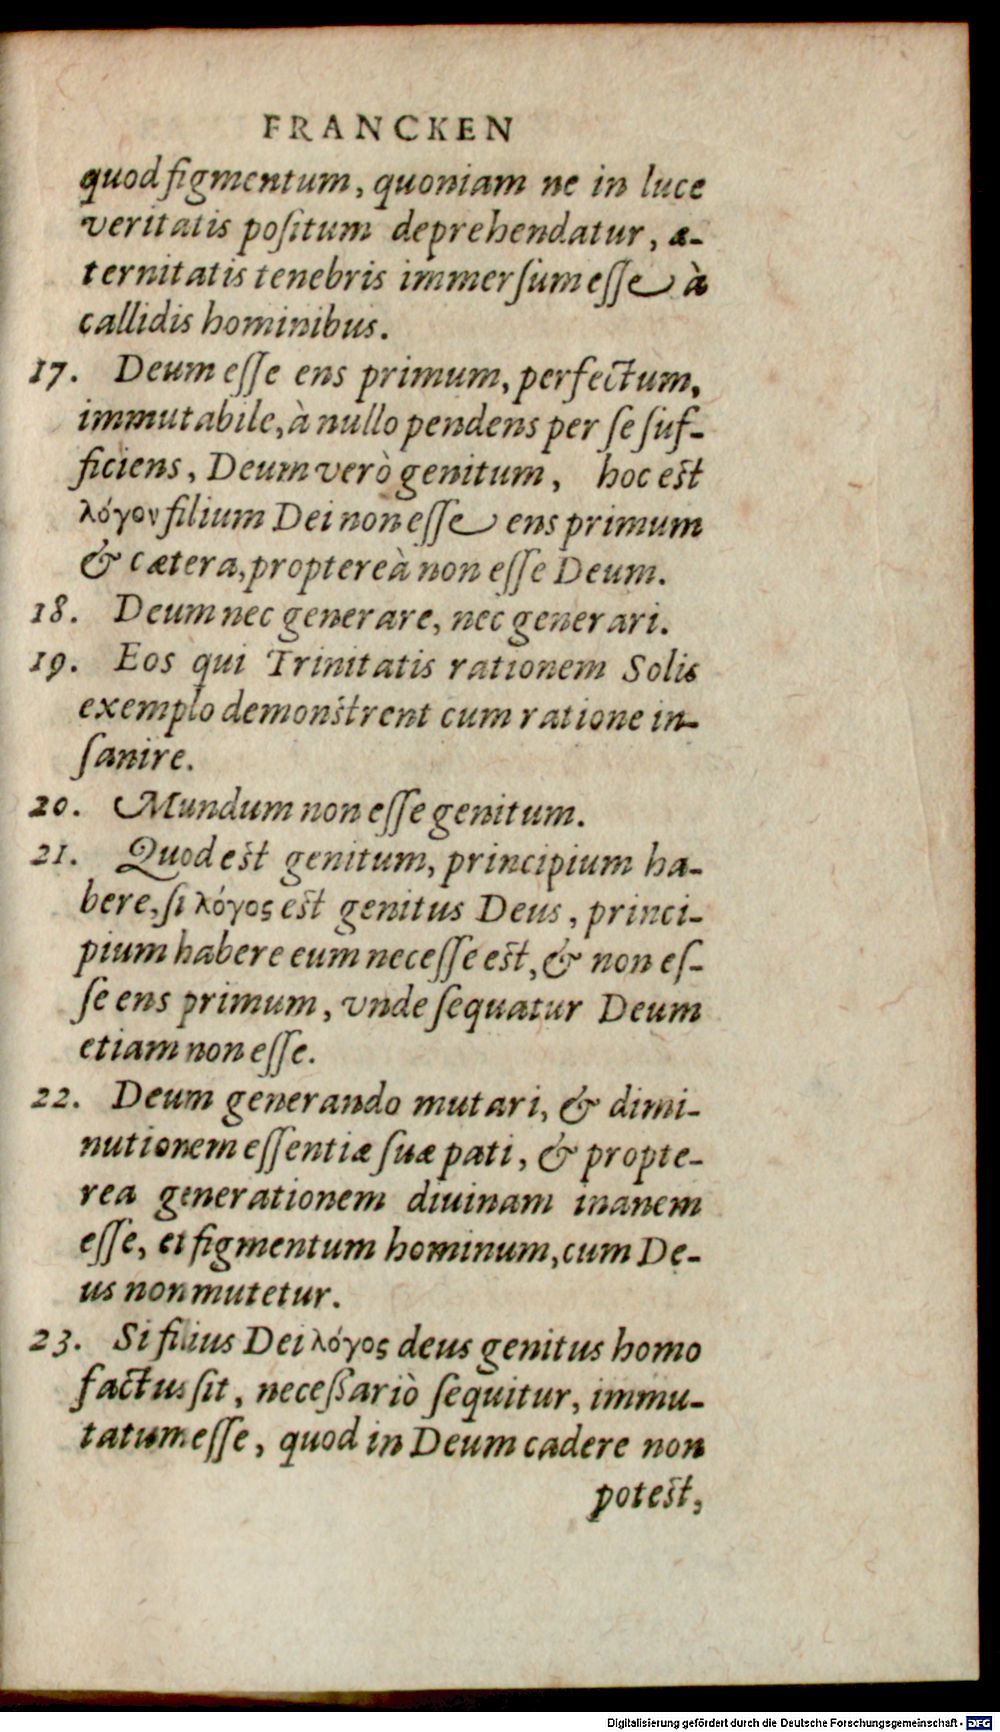 FRANCKEN
quod figmentum, quoniam ne in luce
veritatis poſitum deprehendatur, æ-
ternitatis tenebris immerſum eſſe à
callidis hominibus.
17. Deum eſſe ens primum, perfectum,
immutabile, à nullo pendens per ſe ſuf-
ficiens, Deum verò genitum, hoc eſt
λόγον filium Dei non eſſe ens primum
& cætera, propterea̓ non eſſe Deum.
18. Deum nec generare, nec generari.
19. Eos qui Trinitatis rationem Solis
exemplo demonſtrent cum ratione in-
ſanire.
20. Mundum non eſſe genitum.
21. Quod eſt genitum, principium ha-
bere, ſi λόγος eſt genitus Deus, princi-
pium habere eum neceſſe eſt, & non eſ-
ſe ens primum, vnde ſequatur Deum
etiam non eſſe.
22. Deum generando mutari, & dimi-
nutionem eſſentiæ ſuæ pati, & propte-
rea generationem diuinam inanem
eſſe, et figmentum hominum, cum De-
us non mutetur.
23. Si filius Dei λόγος deus genitus homo
factus ſit, neceßariò ſequitur, immu-
tatum eſſe, quod in Deum cadere non
poteſt,
Digitalisierung gefördert durch die Deutsche Forschungsgemeinschaft - DFG